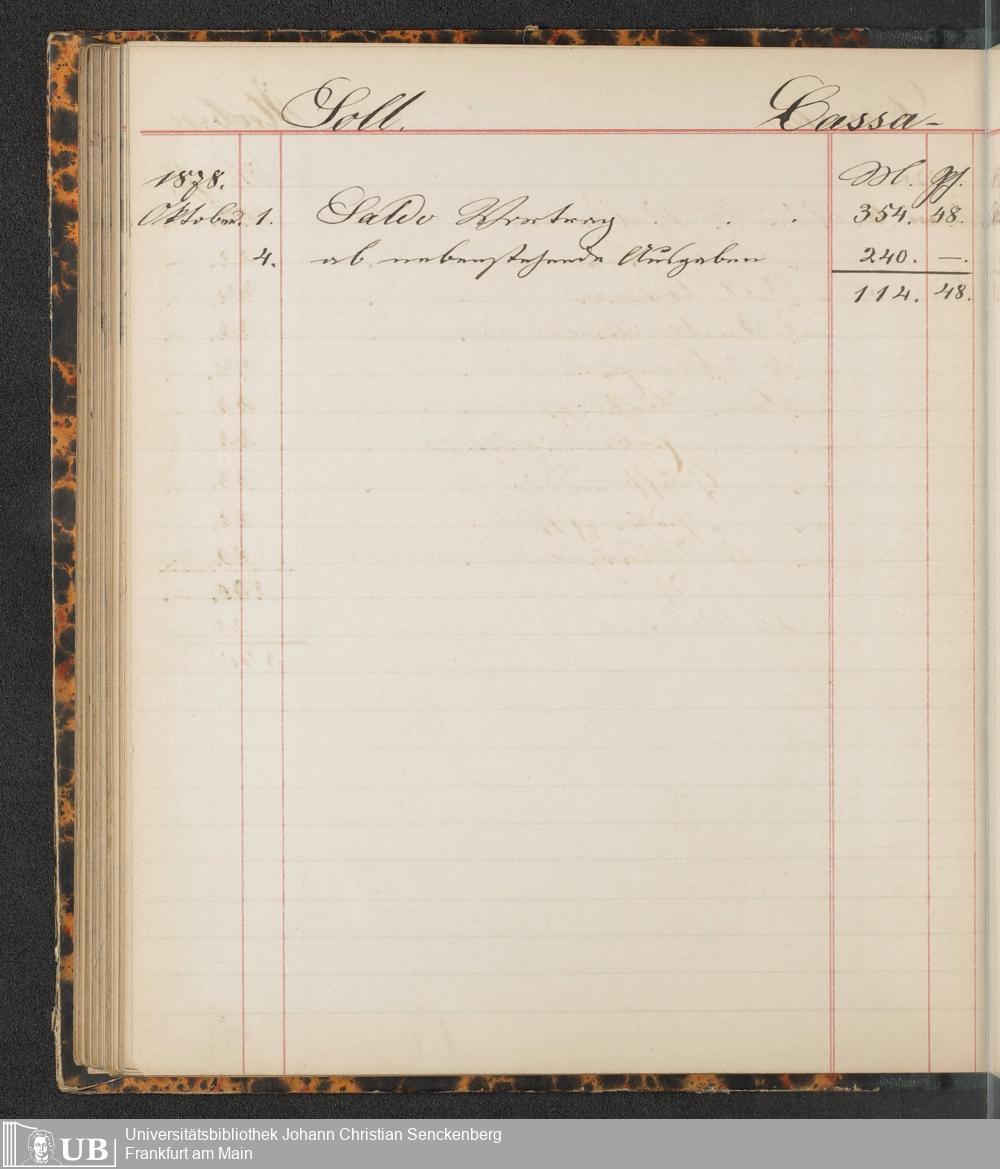 Soll. Cassa-
1878. M. Pf.
Oktober. 1. Saldo Vortrag . . . 354. 48.
4. ab nebenstehende Ausgaben 240. —.
114. 48.
UB
Universitätsbibliothek Johann Christian Senckenberg
Frankfurt am Main